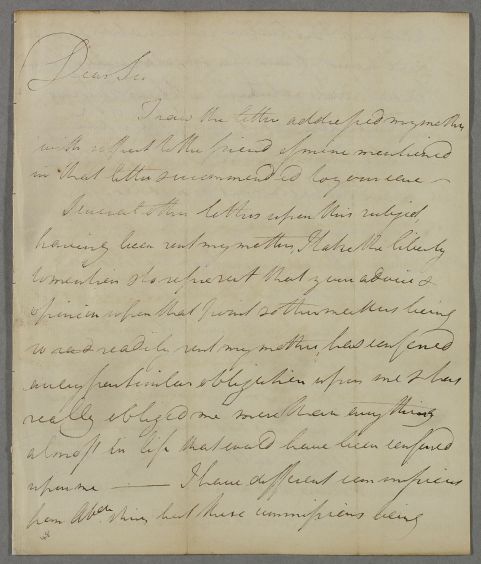 Dear Sir
I saw the letter addressed my mother
with respect to the friend of mine mentioned
in that letter & recommended to your care
Several other letters upon this subject
having been sent my mother, I take the liberty
to mention & to represent that your advice &
opinion upon that point & other matters being
so readily sent my mother, has conferred
a very particular obligation upon me & has
really obliged me more than any thing
almost in life that could have been conferred
upon me —— I have different commissions
from Aberdeenshire but these commissions being